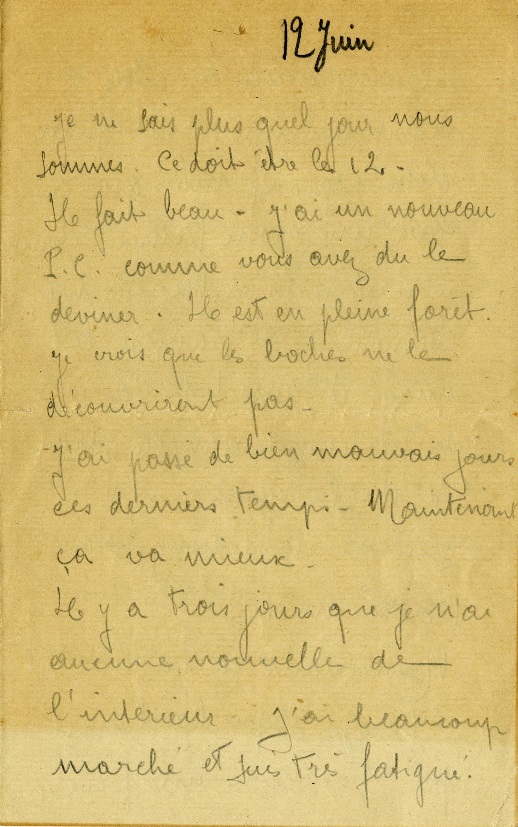 12 Juin
Je ne sais plus quel jour nous
sommes. Ce doit être le 12 -
Il fait beau - J'ai un nouveau
P.C. comme vous avez du le
deviner. Il est en pleine forêt.
Je crois que les boches ne le
découvriront pas -
J'ai passé de bien mauvais jours
ces derniers temps - Maintenant
ça va mieux -
Il y a trois jours que je n'ai
aucune nouvelle de
l'interieur - J'ai beaucoup
marché et suis très fatigué.